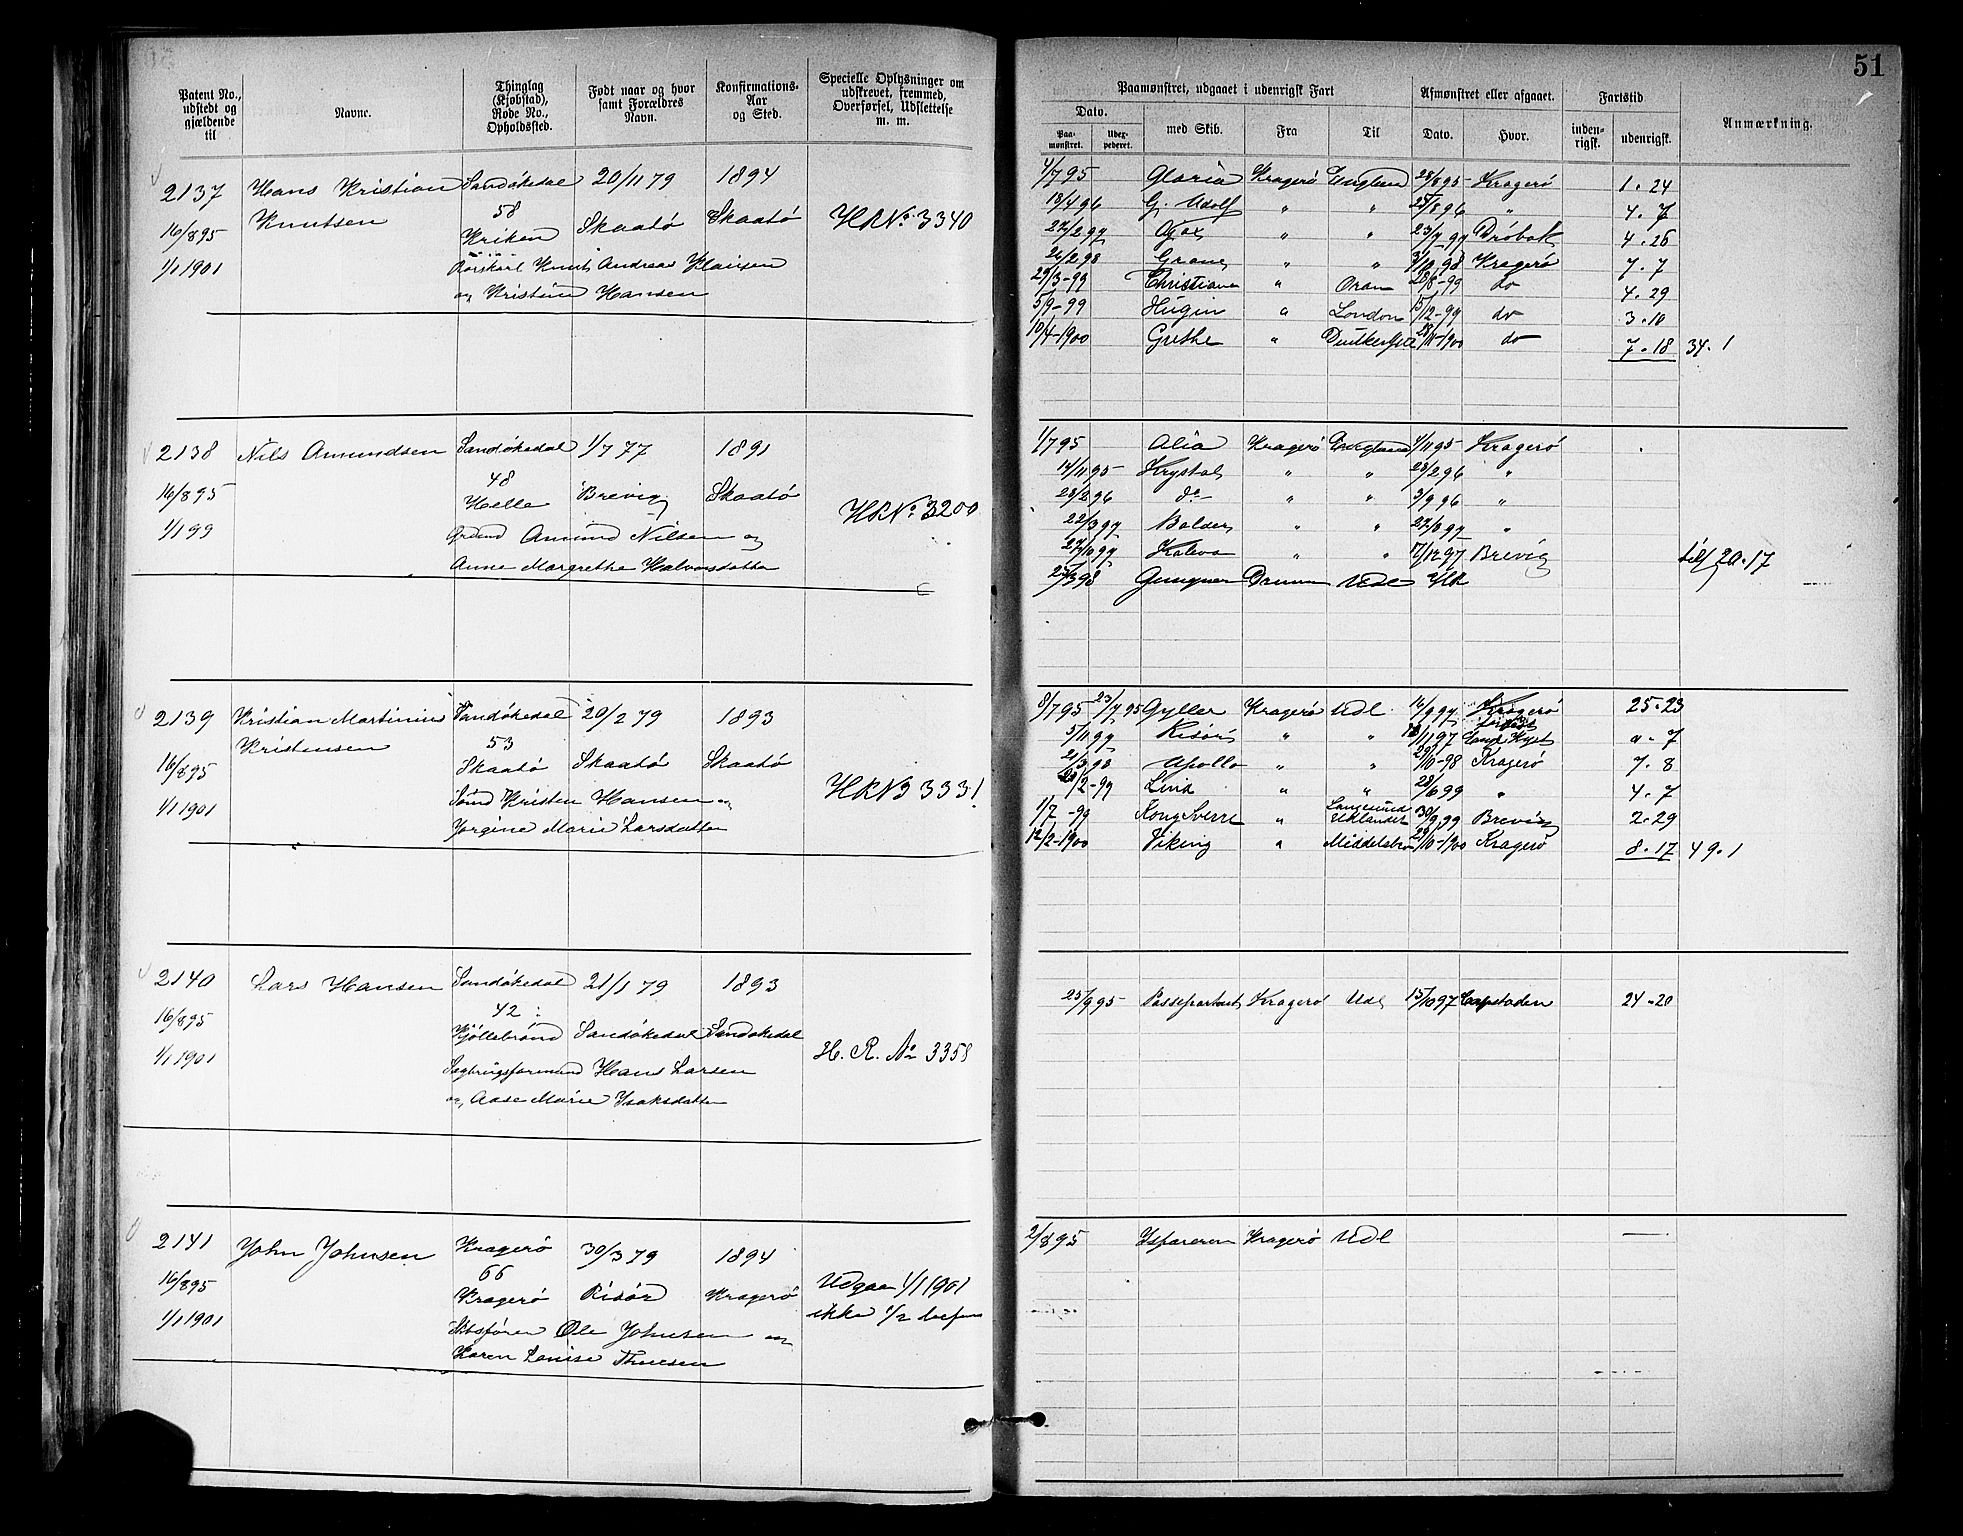 51
Patent No., udstedt og gjældende til
Navne.
Thinglag (Kjøbstad), Rode No., Opholdssted.
Født naar og hvor samt Forældres Navn.
Konfirmations-Aar og Sted.
Specielle Oplysninger om udskrevet, fremmed, Overførsel, Udslettelse m. m.
Paamønstret, udgaaet i udenrigsk Fart
Afmønstret eller afgaaet.
Fartstid
Anmærkning.
Dato.
Paa-mønstret.
Udex-pederet.
med Skib.
Fra
Til
Dato.
Hvor.
inden-rigsk.
udenrigsk.
2137 Hans Kristian Sandøkedal 20/11 79 1894
Knutsen 58
16/8 95 Kriken Skaatø Skaatø HR No. 3340
1/1 1901 Knut Andreas Klausen
og Kristine Hansen
4/7 95 Gloria Kragerø England 28/8 95 Kragerø 1.24
18/4 96 G. Adolf " " 25/8 96 " 4.7
27/2 97 Ajax " " 23/7 97 Drøbak 4.26
26/2 98 Grane " " 3/10 98 Kragerø 7.7
29/3-99 Christiane " Oran 28/8-99 do 4.29
5/9-99 Hugin " London 15/12-99 do 3.10
10/4-1900 Grethe " 28/11-1900 do 7.18 34.1
2138 Nils Amundsen Sandøkedal 1/7 77 1891
48
16/8 95 Helle Brevig Skaatø HR No. 3200
1/1 99 Amund Nilsen og
Anne Margrethe Halvorsdatter
1/7 95 Alia Kragerø England 4/11 95 Kragerø
14/11 95 Krystal " " 23/2 96 "
23/2 96 do " " 3/9 96 "
22/3 97 Balder " " 27/8 97 "
27/10 97 Kaleva " " 17/12 97 Brevig til 20.17
Gungner Dramm Udl
2139 Kristian Martinius Sandøkedal 20/2 79 1893
Kristensen 53
16/8 95 Skaatø Skaatø Skaatø HR No 3331
1/1 1901 Sømd Kristen Hansen og
Jørgine Marie Larsdatter
8/7 95 23/7 95 Gyller Kragerø Udl. 16/9 97 Kragerø 25.23
5/11 97 Risør " " Kyst 0.7
21/3 98 Apollo " " 29/10-98 Kragerø 7.8
Lind " " 28/6 99 " 4.7
1/7-99 Kong Sverre " Langesund Udlandet 30/9 99 Brevig 2.29
12/2-1900 Viking " 29/10-1900 Kragerø 8.17 49.1
2140 Lars Hansen Sandøkedal 21/1 79 1893
42
16/8 95 Kjøllebrønd Sandøkedal Sandøkedal
1/1 1901 Sagbrugsformand Hans Larsen H. R. No 3358
og Aase Marie Isaksdatter
25/9 95 Passepartout Kragerø Udl 15/10 97 Capstaden 24.20
2141 John Johnsen Kragerø 30/3 79 1894
66
16/8 95 Kragerø Risør Kragerø Udgaar 1/1 1901
1/1 1901 Skibsfører Ole Johnsen og ikke 1/2
Karen Louise Thuesen
2/8 95 Isfareren Kragerø Udl —